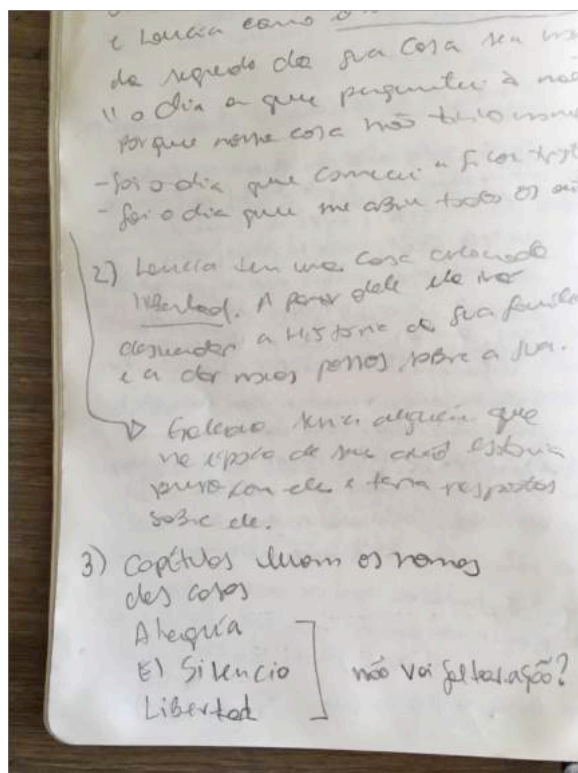 e Loucia como o
do segredo da sua casa sem
"o dia em que perguntei à
porque nossa casa não tinha nome
- foi o dia que comecei a ficar
- foi o dia que me abriu todos os
2) Loucia tem uma casa chamada
libertad. A partir dele ela
a História da sua família
e a dar novos passos sobre a sua.
seria alguém que
na época de seu avô estaria
com ele e teria respostas
sobre ele.
3) Capítulos levam os nomes
das casas
Alegría
El Silencio
Libertad
não vai faltar ação?